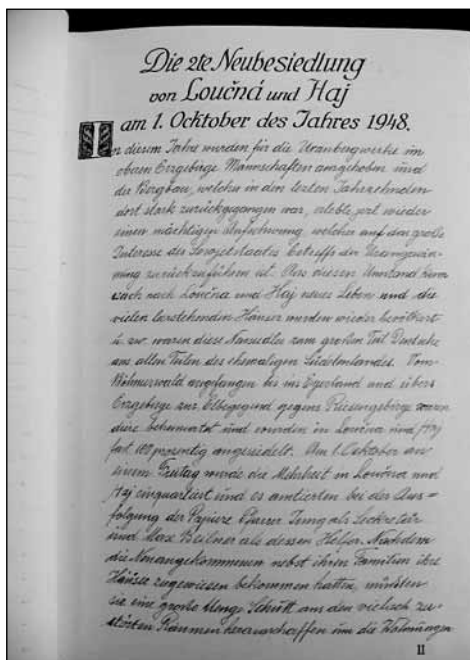 Die 2te Neubesiedlung
von Loučná und Haj
am 1. Ocktober des Jahres 1948.
In diesem Jahre wurden für die Uranbergwerke im
oberen Erzgebirge Mannschaften angehoben und
der Bergbau, welcher in den lezten Jahrzehnden
dort stark zurückgegangen war, erlebte jezt wieder
einen mächtigen Aufschwung welcher auf das große
Interesse des Sowjetstaates betreffs der Urangewin-
nung zurückzuführen ist. Aus diesen Umstand kam
auch nach Loučna und Haj neues Leben und die
vielen leerstehenden Häuser wurden wieder bevölkert
u. zw. waren diese Neusiedler zum großen Teil Deutsche
aus allen Teilen des ehemaligen Sudetenlandes. Vom
Böhmerwald angefangen bis ins Egerland und übers
Erzgebirge zur Elbegegend gegens Riesengebirge waren
diese beheimatet und wurden in Loučna und Haj
fast 100 prozentig angesiedelt. Am 1. Ocktober an
einem Freitag wurde die Mehrheit in Loučna und
Haj einquartiert und es amtierten bei der Aus=
folgung der Papiere Pfarrer Jung als Secktretär
und Max Beilner als dessen Helfer. Nachdem
die Neuangekommenen nebst ihren Familien ihre
Häuser zugewiesen bekommen hatten, mußten
sie eine große Menge Schutt aus den vielfach zer-
störten Räumen herausschaffen um die Wohnungen
II